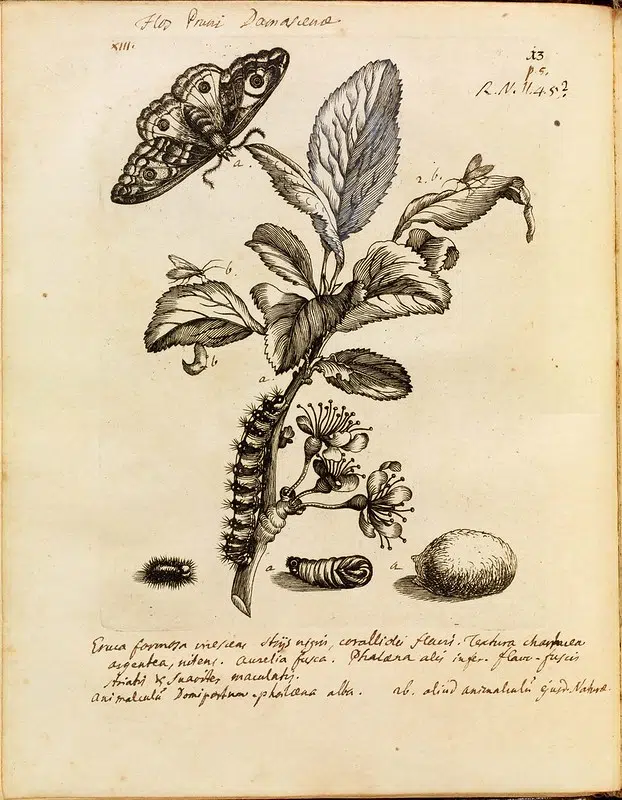 Flos Pruni Damascenæ
XIII.
13
p. 5.
R. N. II. 4. 5?
a.
2. b.
b
b
a
a
a
Eruca formosa virescens striis nigris, coralliolis flavis. Textura
argentea, nitens. Aurelia fusca. Phalæna alis infer. flavo-fuscis
striatis & suaviter maculatis.
animalculū Domiportum. phalæna alba. 2b. aliud animalculū ejusd. Naturæ.